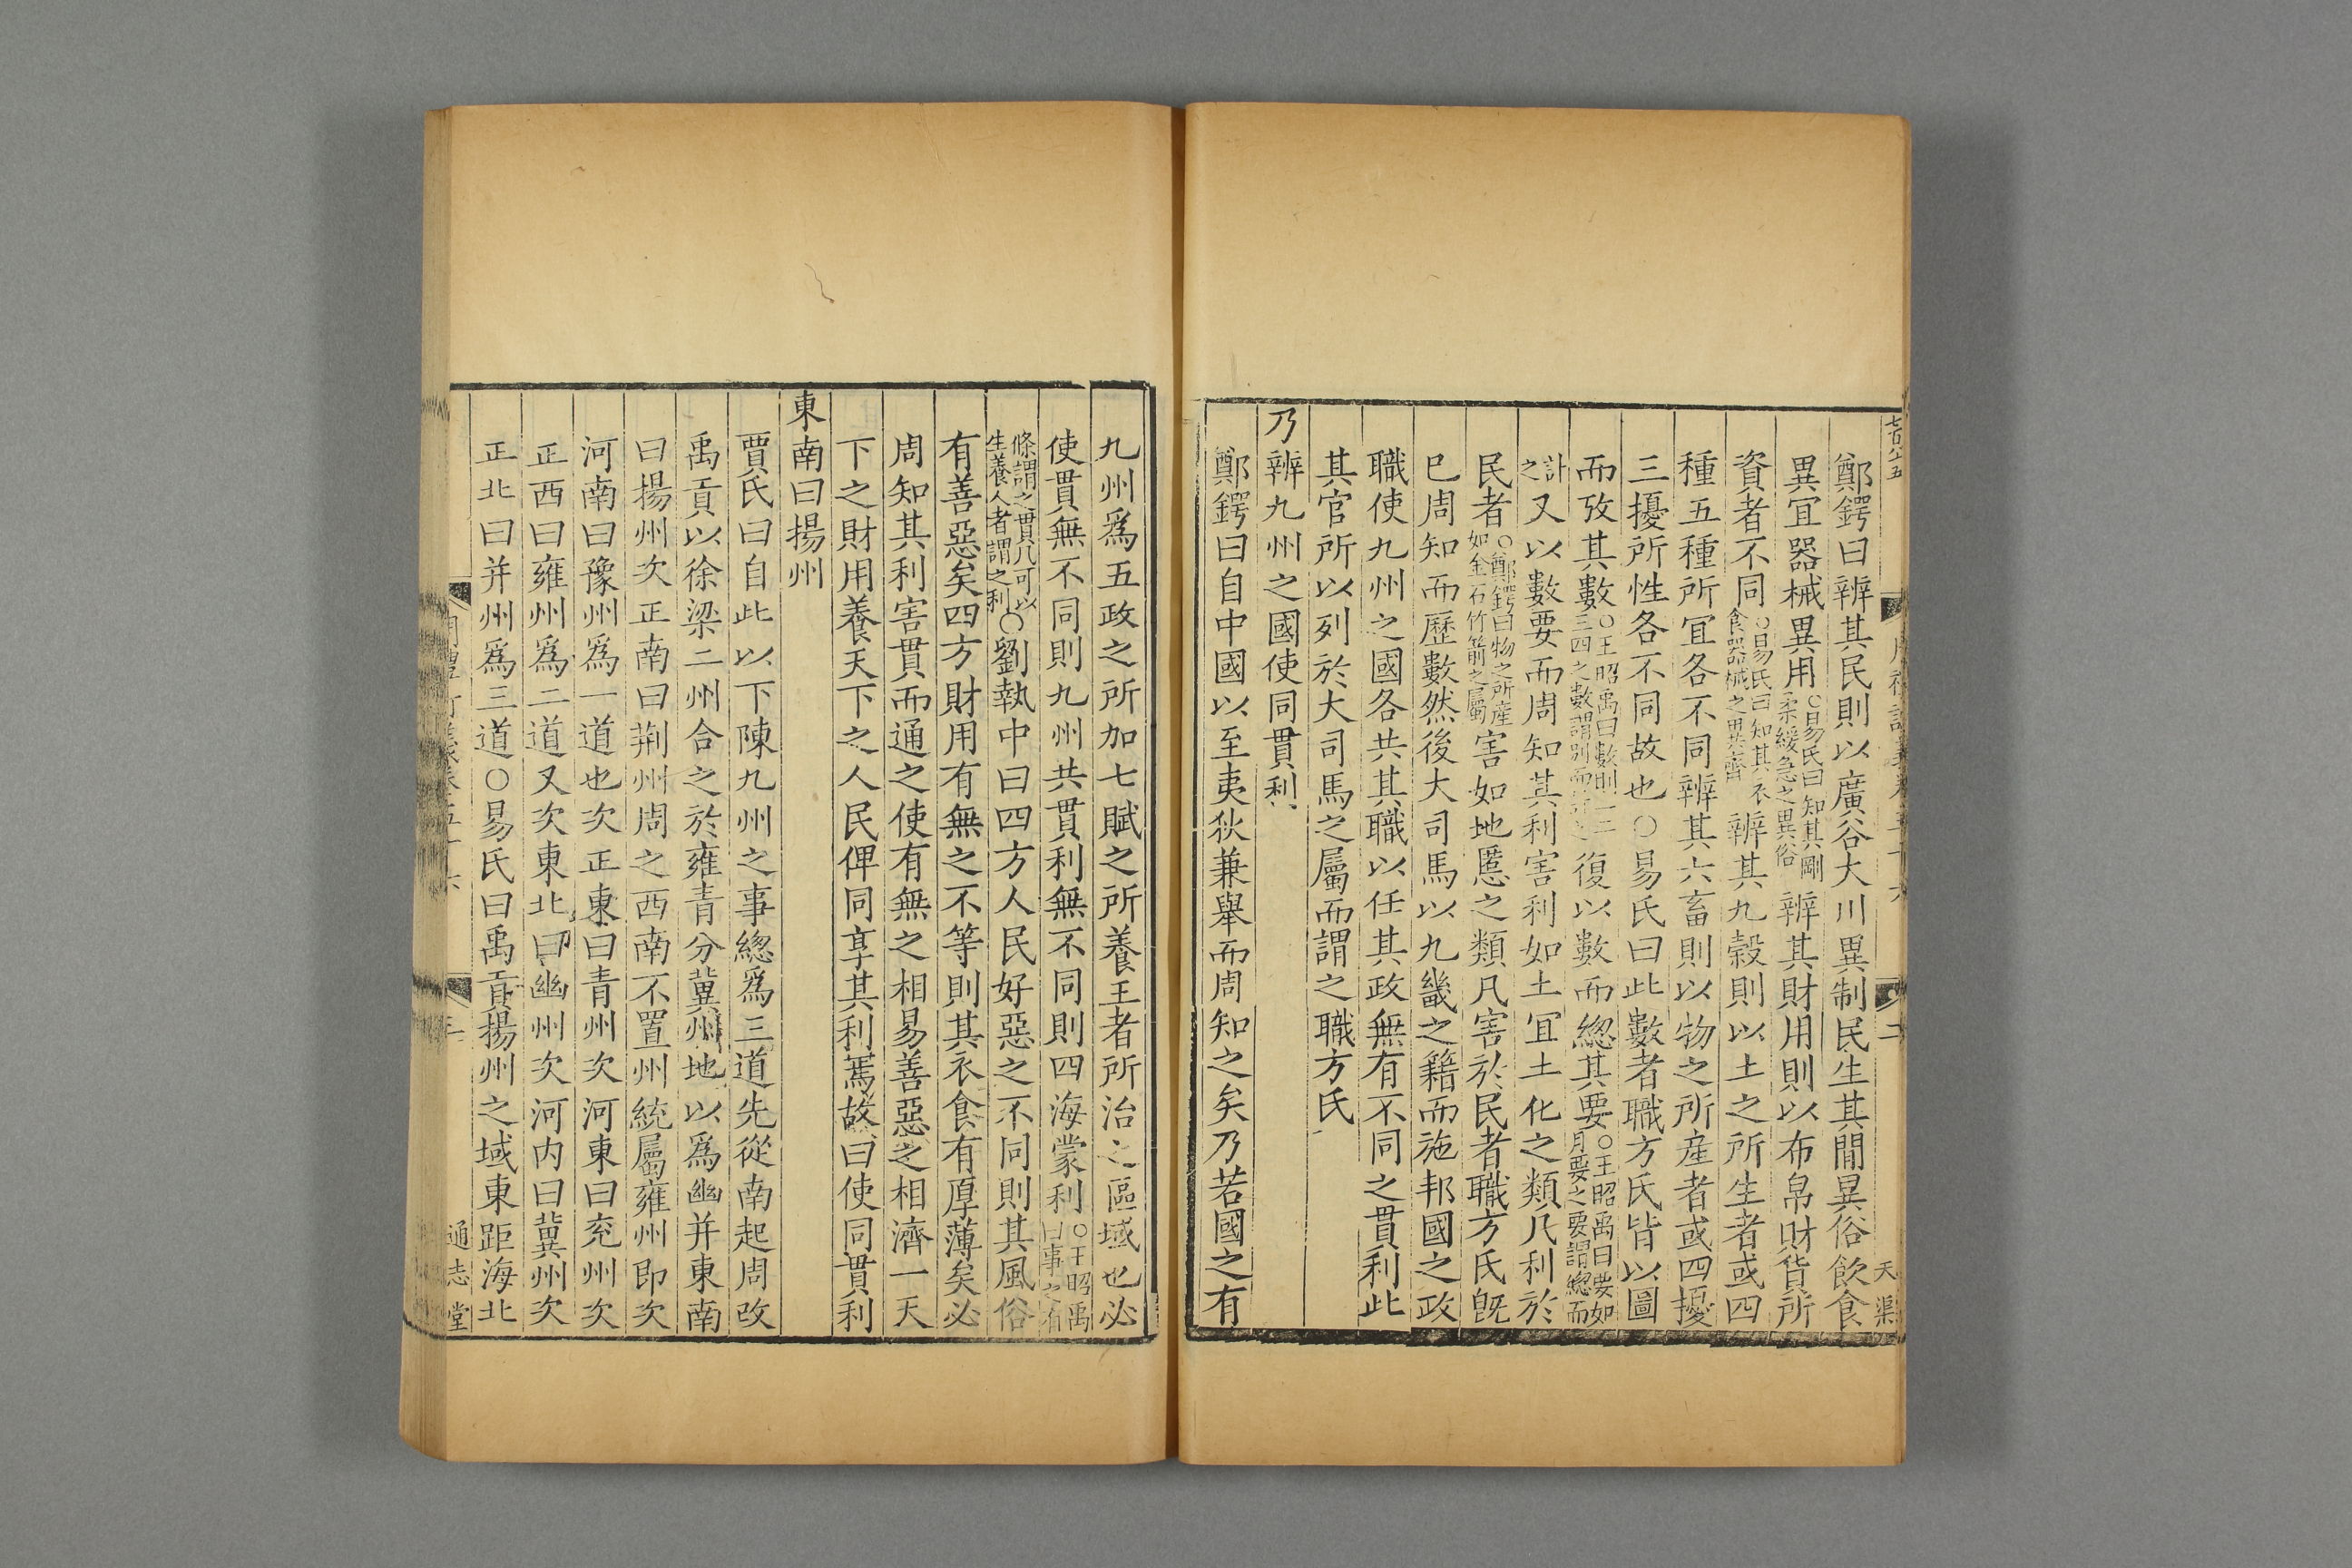 鄭鍔曰辨其民則以廣谷大川異制民生其閒異俗飲食
異宜器械異用○易氏曰知其剛柔緩急之異俗辨其財用則以布帛財貨所
資者不同○易氏曰知其衣食器械之異齊辨其九榖則以土之所生者或四
種五種所宜各不同辨其六畜則以物之所産者或四擾
三擾所性各不同故也○易氏曰此數者職方氏皆以圖
而攷其數○王昭禹曰數則一二三四之數謂別而復以數而緫其要○王昭禹曰要如月要之要謂緫而
計之又以數要而周知其利害利如土宜土化之類凡利於
民者○鄭鍔曰物之所産如金石竹箭之屬害如地慝之類凡害於民者職方氏旣
已周知而歷數然後大司馬以九畿之籍而施邦國之政
職使九州之國各共其職以任其政無有不同之貫利此
其官所以列於大司馬之屬而謂之職方氏
乃辨九州之國使同貫利
鄭鍔曰自中國以至夷狄兼舉而周知之矣乃若國之有
天渠
九州爲五政之所加七賦之所養王者所治之區域也必
使貫無不同則九州共貫利無不同則四海蒙利○王昭禹曰事之有
條謂之貫凡可以生養人者謂之利○劉執中曰四方人民好惡之不同則其風俗
有善惡矣四方財用有無之不等則其衣食有厚薄矣必
周知其利害貫而通之使有無之相易善惡之相濟一天
下之財用養天下之人民俾同享其利焉故曰使同貫利
東南曰揚州
賈氏曰自此以下陳九州之事緫爲三道先從南起周改
禹貢以徐梁二州合之於雍青分冀州地以爲幽并東南
曰揚州次正南曰荆州周之西南不置州統屬雍州即次
河南曰豫州爲一道也次正東曰青州次河東曰兖州次
正西曰雍州爲二道又次東北曰幽州次河内曰冀州次
正北曰并州爲三道○易氏曰禹貢揚州之域東距海北
通志堂